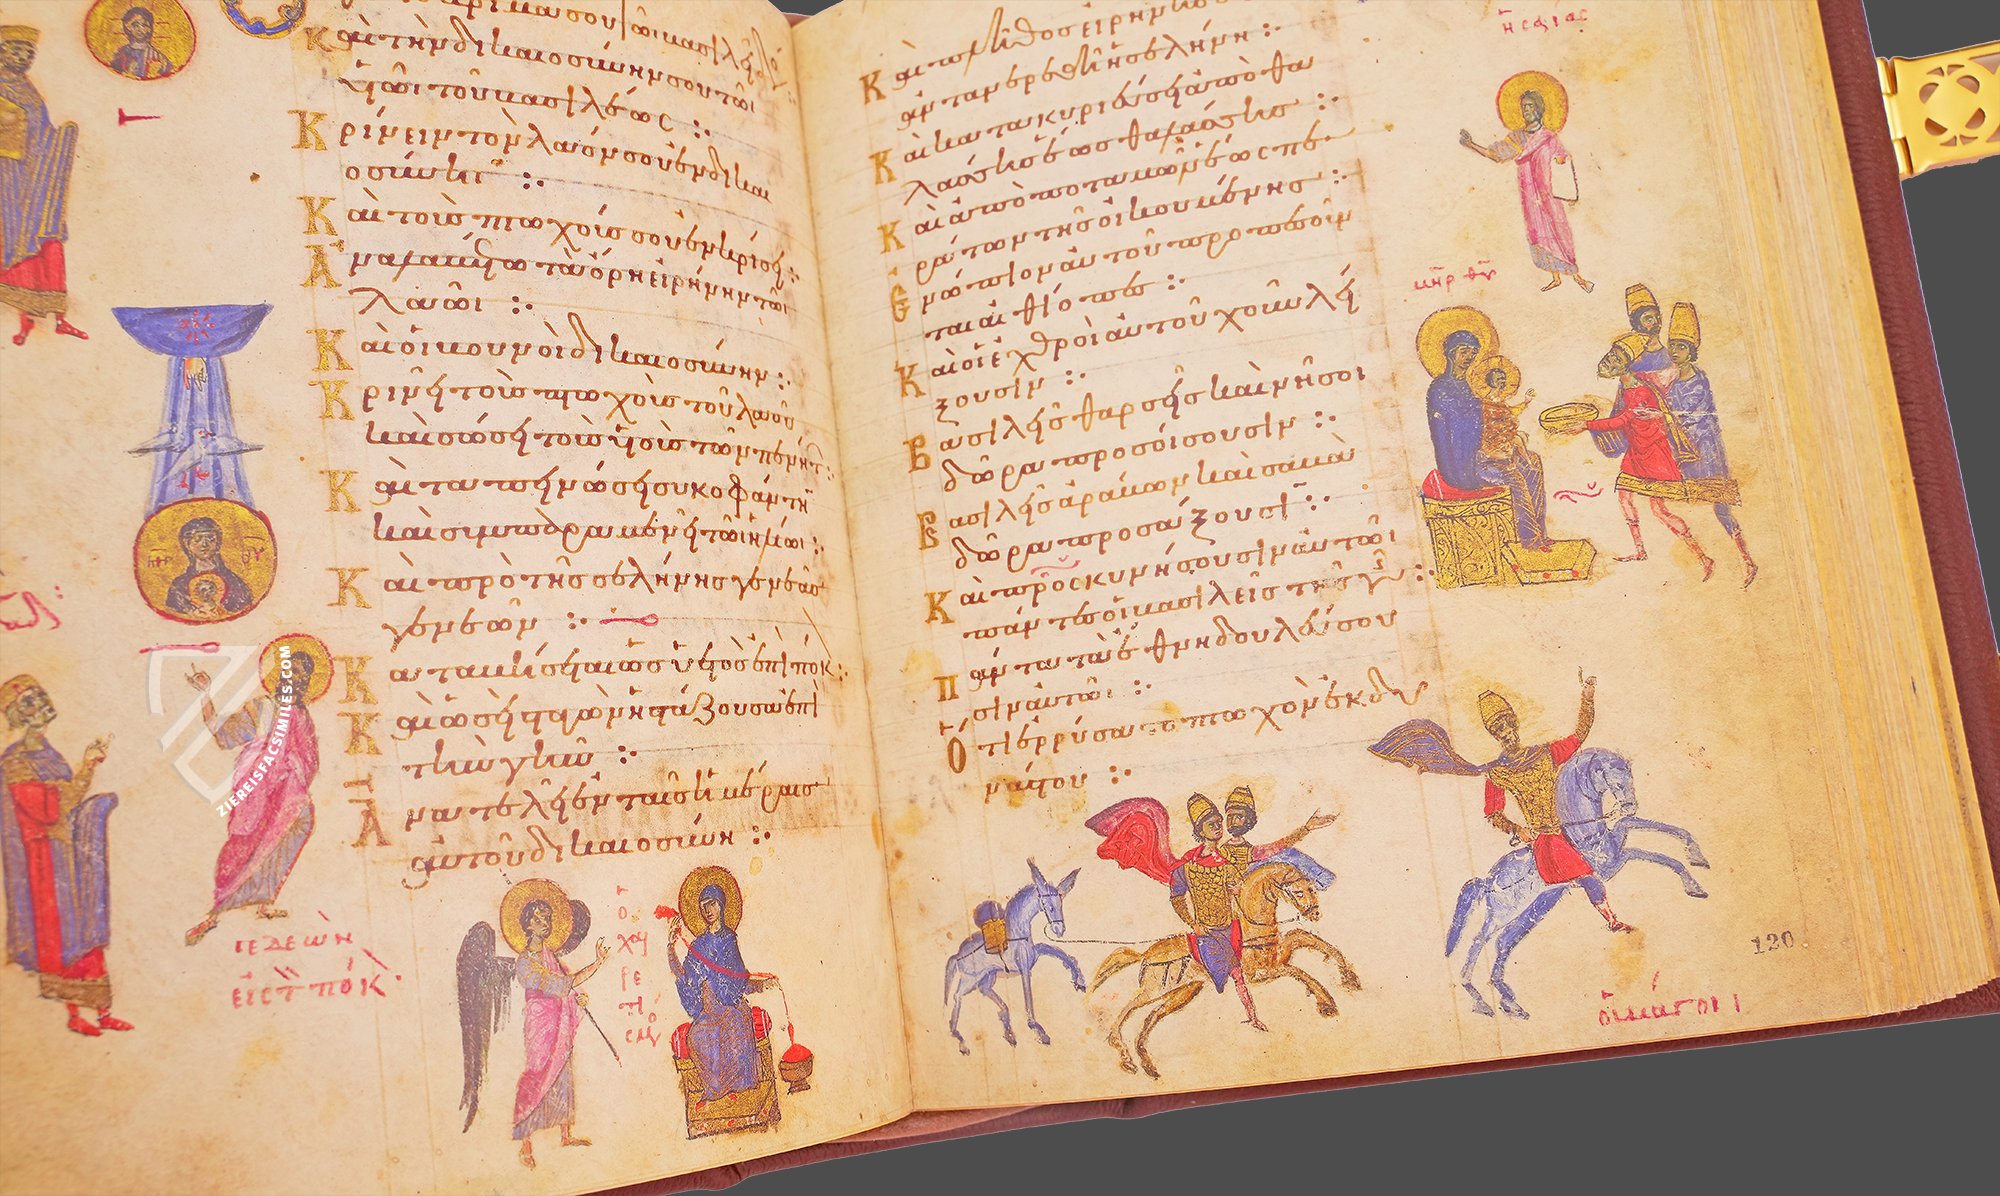 Καὶ τὴν δικαιοσύνην σου τῶι
υἱῶι τοῦ βασιλέως :·
Κρίνειν τὸν λαόν σου ἐν δικαι
οσύνηι :·
Καὶ τοὺς πτωχούς σου ἐν κρίσει :·
Ἀναλαβέτω τὰ ὄρη εἰρήνην τῶι
λαῶι :·
Καὶ οἱ βουνοὶ δικαιοσύνην :·
Κρινεῖ τοὺς πτωχοὺς τοῦ λαοῦ
καὶ σώσει τοὺς υἱοὺς τῶν πενήτ :·
Καὶ ταπεινώσει συκοφάντη
καὶ συμπαραμενεῖ τῶι ἡλίωι :·
Καὶ πρὸ τῆς σελήνης γενεὰς
γενεῶν :·
Καταβήσεται ὡς ὑετὸς ἐπὶ πόκ :·
Καὶ ὡσεὶ σταγὼν ἡ στάζουσα ἐπὶ
τὴν γῆν :·
Ἀνατελεῖ ἐν ταῖς ἡμέραις
αὐτοῦ δικαιοσύνη :·
ΜΗΡ ΘΥ
ΓΕΔΕΩΝ
ΕΙΣ Τ ΠΟΚ
ὁ χαιρετισμός
ZIEREISFACSIMILES.COM
Καὶ πλῆθος εἰρήνης ἕως
ἀνταναιρεθῆ ἡ σελήνη :·
Καὶ κατακυριεύσει ἀπὸ θα
λάσσης ἕως θαλάσσης :·
Καὶ ἀπὸ ποταμῶν ἕως πε
ράτων τῆς οἰκουμένης :·
Ἐνώπιον αὐτοῦ προπεσοῦν
ται αἰθίοπες :·
Καὶ οἱ ἐχθροὶ αὐτοῦ χοῦν λεί
ξουσιν :·
Βασιλεῖς θαρσεῖς καὶ νῆσοι
δῶρα προσοίσουσιν :·
Βασιλεῖς ἀράβων καὶ σαβὰ
δῶρα προσάξουσι :·
Καὶ προσκυνήσουσιν αὐτῶι
πάντες οἱ βασιλεῖς τῆς γῆ :·
Πάντα τὰ ἔθνη δουλεύσου
σιν αὐτῶι :·
Ὅτι ἐρρύσατο πτωχὸν ἐκ δυ
νάστου :·
ἠσαΐας
ΜΗΡ ΘΥ
οἱ μάγοι
120